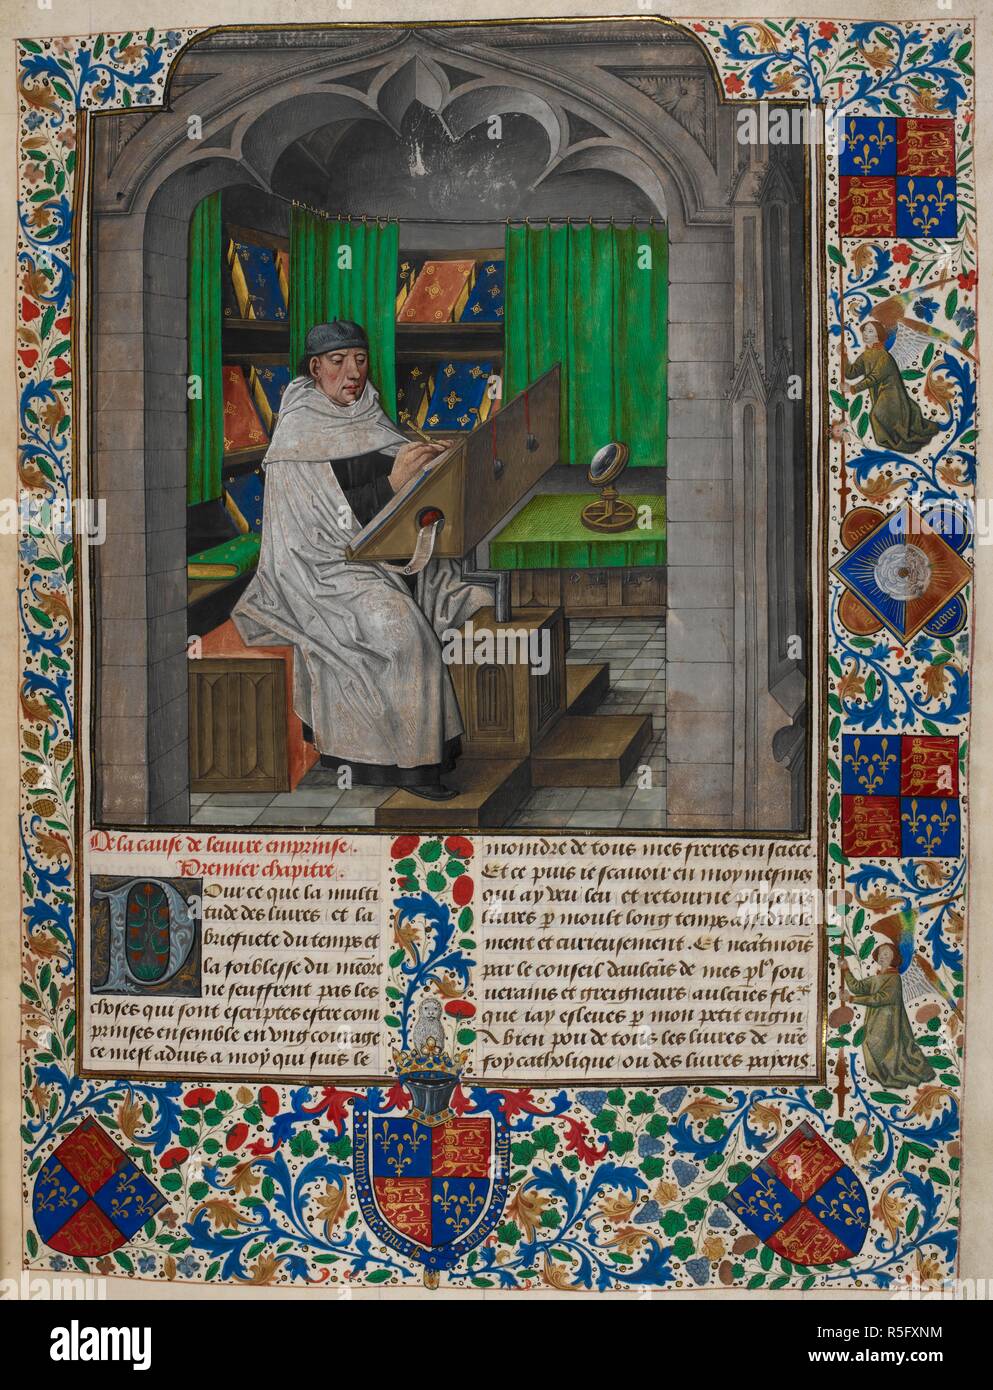 De la cause de leuure emprinse.
Premier chapitre.
Pour ce que la multi
tude des liures et la
briefuete du temps et
la foiblesse du memore
ne seuffrent pas les
choses qui sont escriptes estre com
prinses ensemble en vng courage
ce mest aduis a moy qui suis le
moindre de tous mes freres en sciece.
Et ce puis ie scauoir en moy mesmes
qui ay veu leu et retourne pluseurs
liures p moult long temps assiduele
ment et curieusement. Et neatmoins
par le conseil daulcus de mes plo sou
uerains et greigneurs aulcues fle
que iay esleues p mon petit engin
A bien pou de tous les liures de nre
foy catholique, ou des liures payens
dieu
alamy
alamy
Image ID: R5FXNM
www.alamy.com